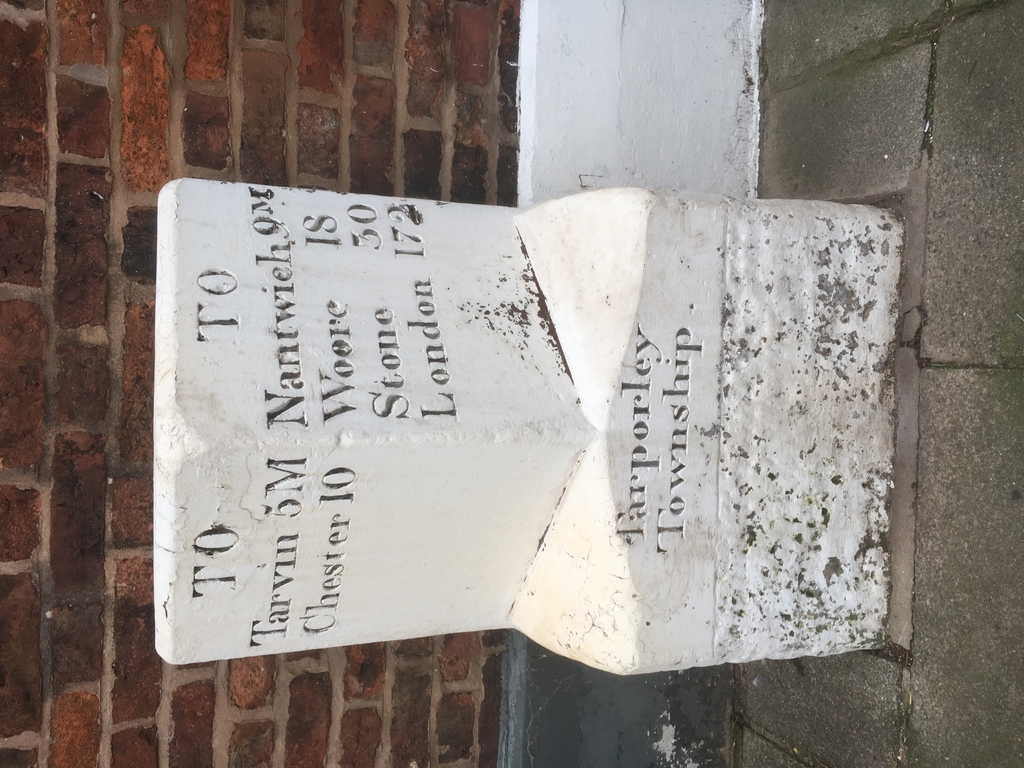 TO
Tarvin 5M
Chester 10
TO
Nantwich 9M
Woore 18
Stone 30
London 172
Tarporley
Township.